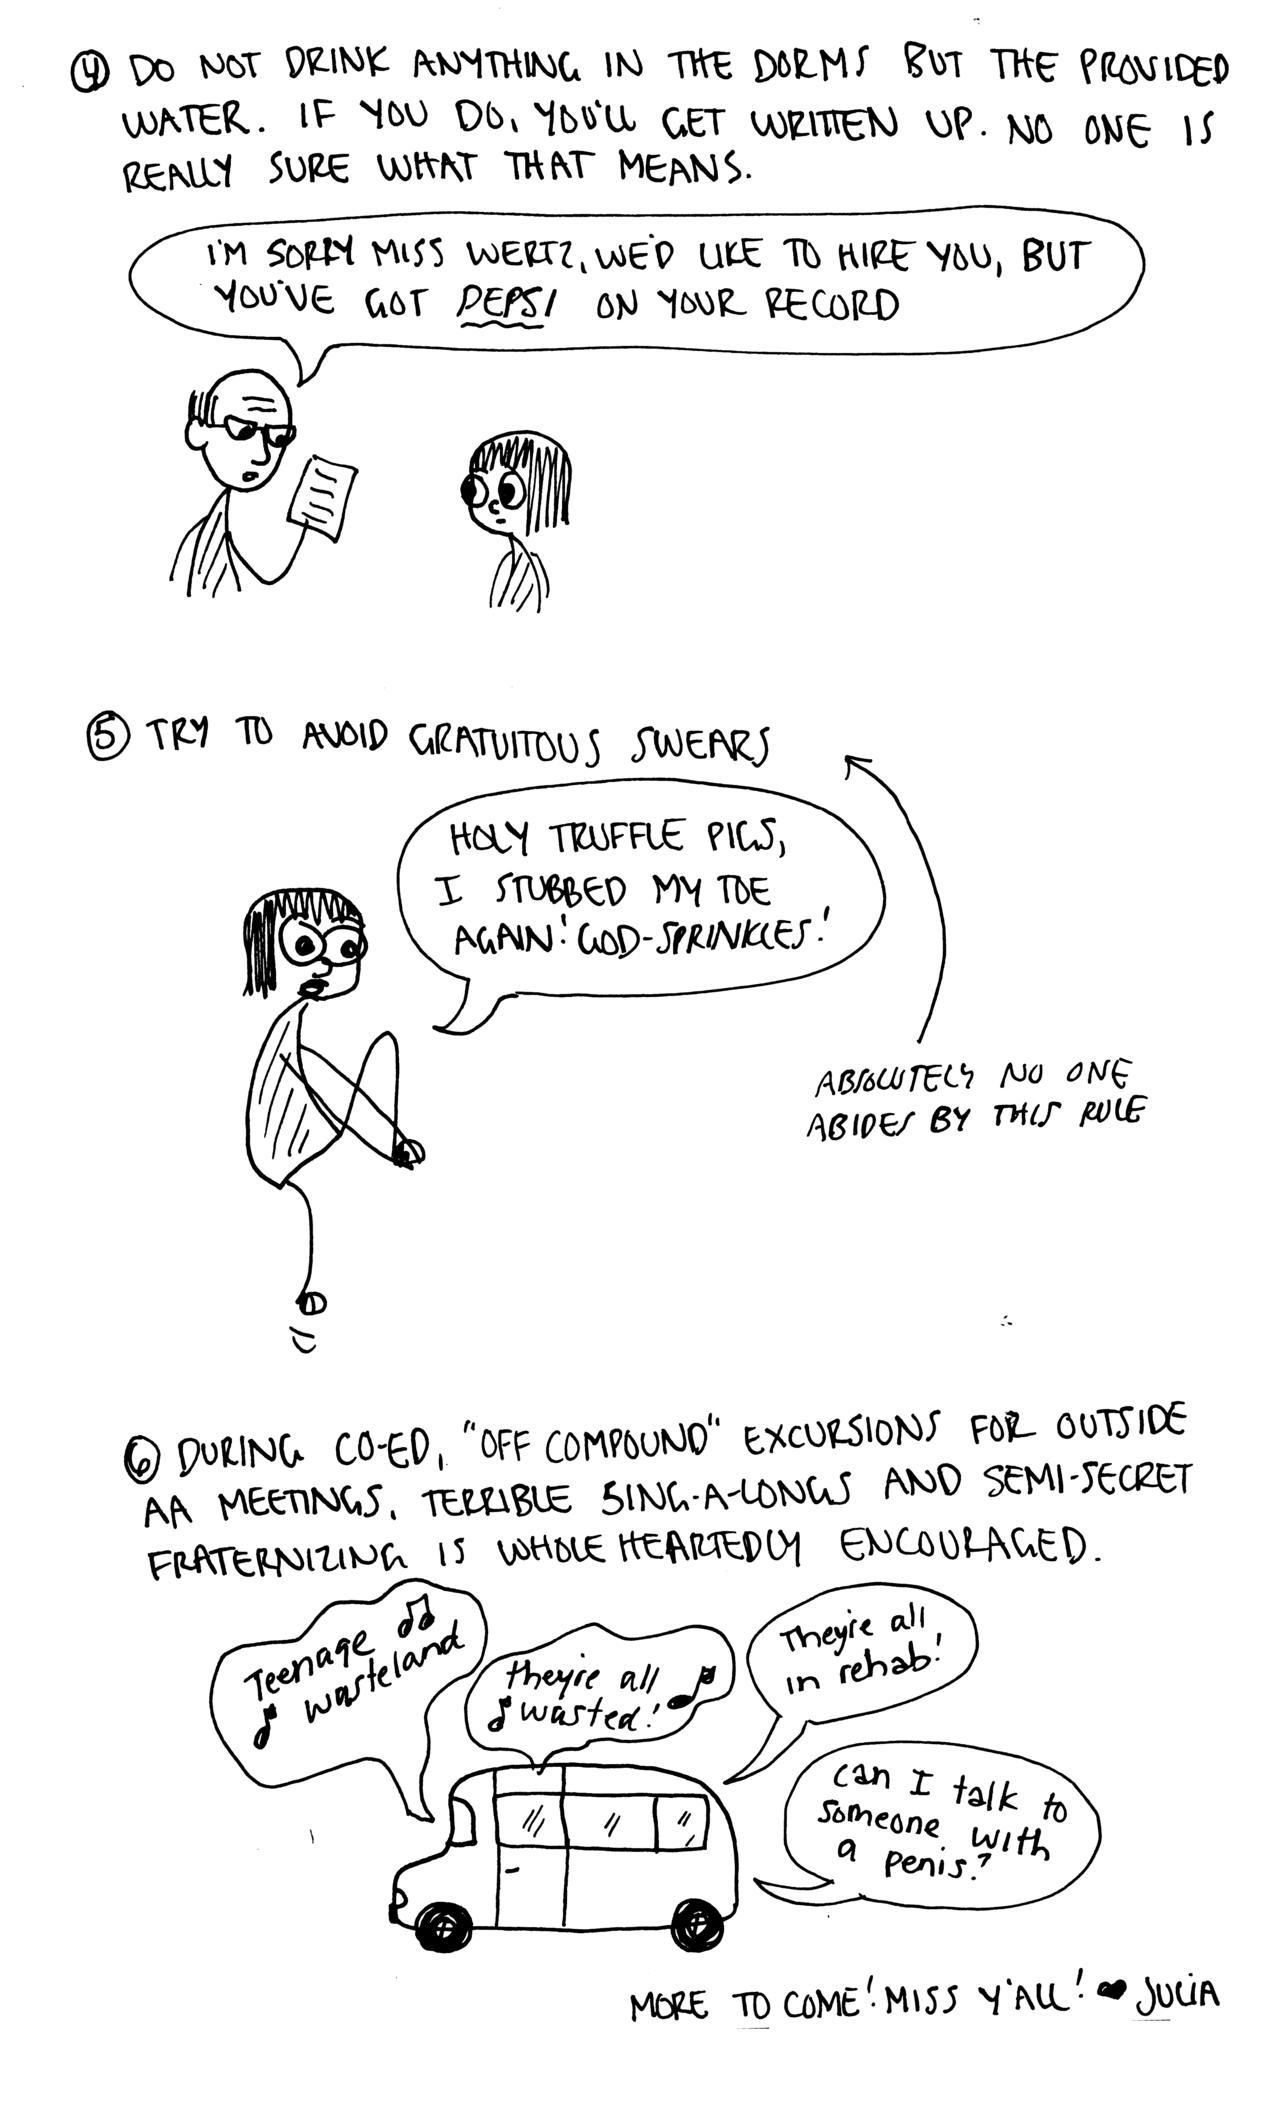 ④ DO NOT DRINK ANYTHING IN THE DORMS BUT THE PROVIDED
WATER. IF YOU DO, YOU'LL GET WRITTEN UP. NO ONE IS
REALLY SURE WHAT THAT MEANS.
I'M SORRY MISS WERTZ, WE'D LIKE TO HIRE YOU, BUT
YOU'VE GOT PEPSI ON YOUR RECORD
⑤ TRY TO AVOID GRATUITOUS SWEARS
HOLY TRUFFLE PIGS,
I STUBBED MY TOE
AGAIN! GOD-SPRINKLES!
ABSOLUTELY NO ONE
ABIDES BY THIS RULE
⑥ DURING CO-ED, "OFF COMPOUND" EXCURSIONS FOR OUTSIDE
AA MEETINGS, TERRIBLE SING-A-LONGS AND SEMI-SECRET
FRATERNIZING IS WHOLE HEARTEDLY ENCOURAGED.
Teenage ♫
♪ wasteland
they're all
♪ wasted! ♪
They're all
in rehab!
can I talk to
someone with
a penis?
MORE TO COME! MISS Y'ALL! ♥ JULIA